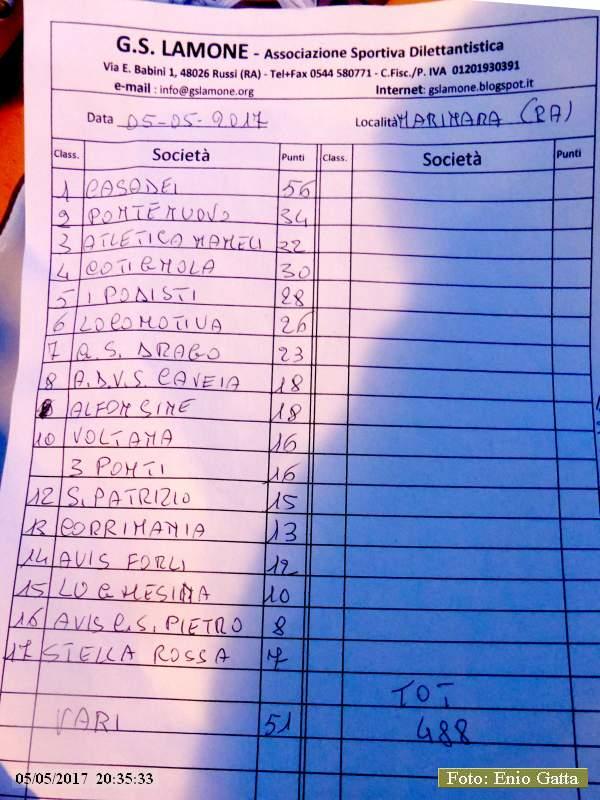 G.S. LAMONE - Associazione Sportiva Dilettantistica
Via E. Babini 1, 48026 Russi (RA) - Tel+Fax 0544 580771 - C.Fisc./P. IVA 01201930391
e-mail : info@gslamone.org Internet: gslamone.blogspot.it
Data 05-05-2017 Località MARINARA (RA)
Class. Società Punti Class. Società Punti
1 CASADEI 56
2 PONTENUOVO 34
3 ATLETICA MAMELI 32
4 COTIGNOLA 30
5 I PODISTI 28
6 LOCOMOTIVA 26
7 G.S. DRAGO 23
8 A.D.V.S. CAVEIA 18
8 ALFONSINE 18
10 VOLTANA 16
3 PONTI 16
12 S. PATRIZIO 15
13 CORRIMANIA 13
14 AVIS FORLI 12
15 LUGHESINA 10
16 AVIS C.S. PIETRO 8
17 STELLA ROSSA 7
TOT
VARI 51 488
05/05/2017 20:35:33
Foto: Enio Gatta